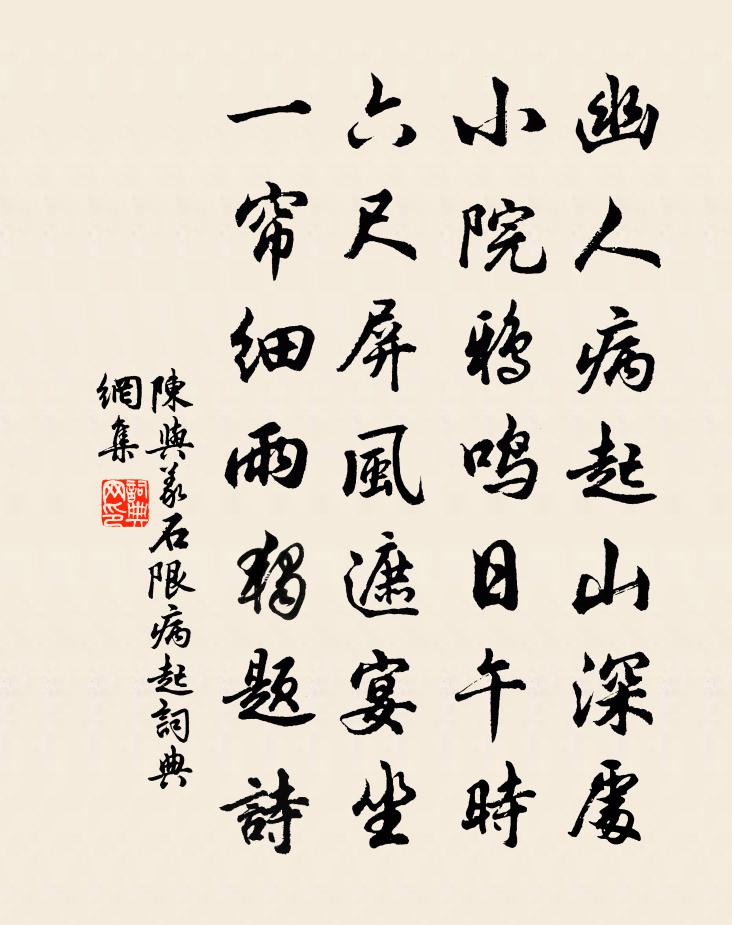 幽人病起山深處
小院鴉鳴日午時
六尺屏風遮宴坐
一帘细雨獨題詩
陳與義石限病起詞典
網集
詞典
网印